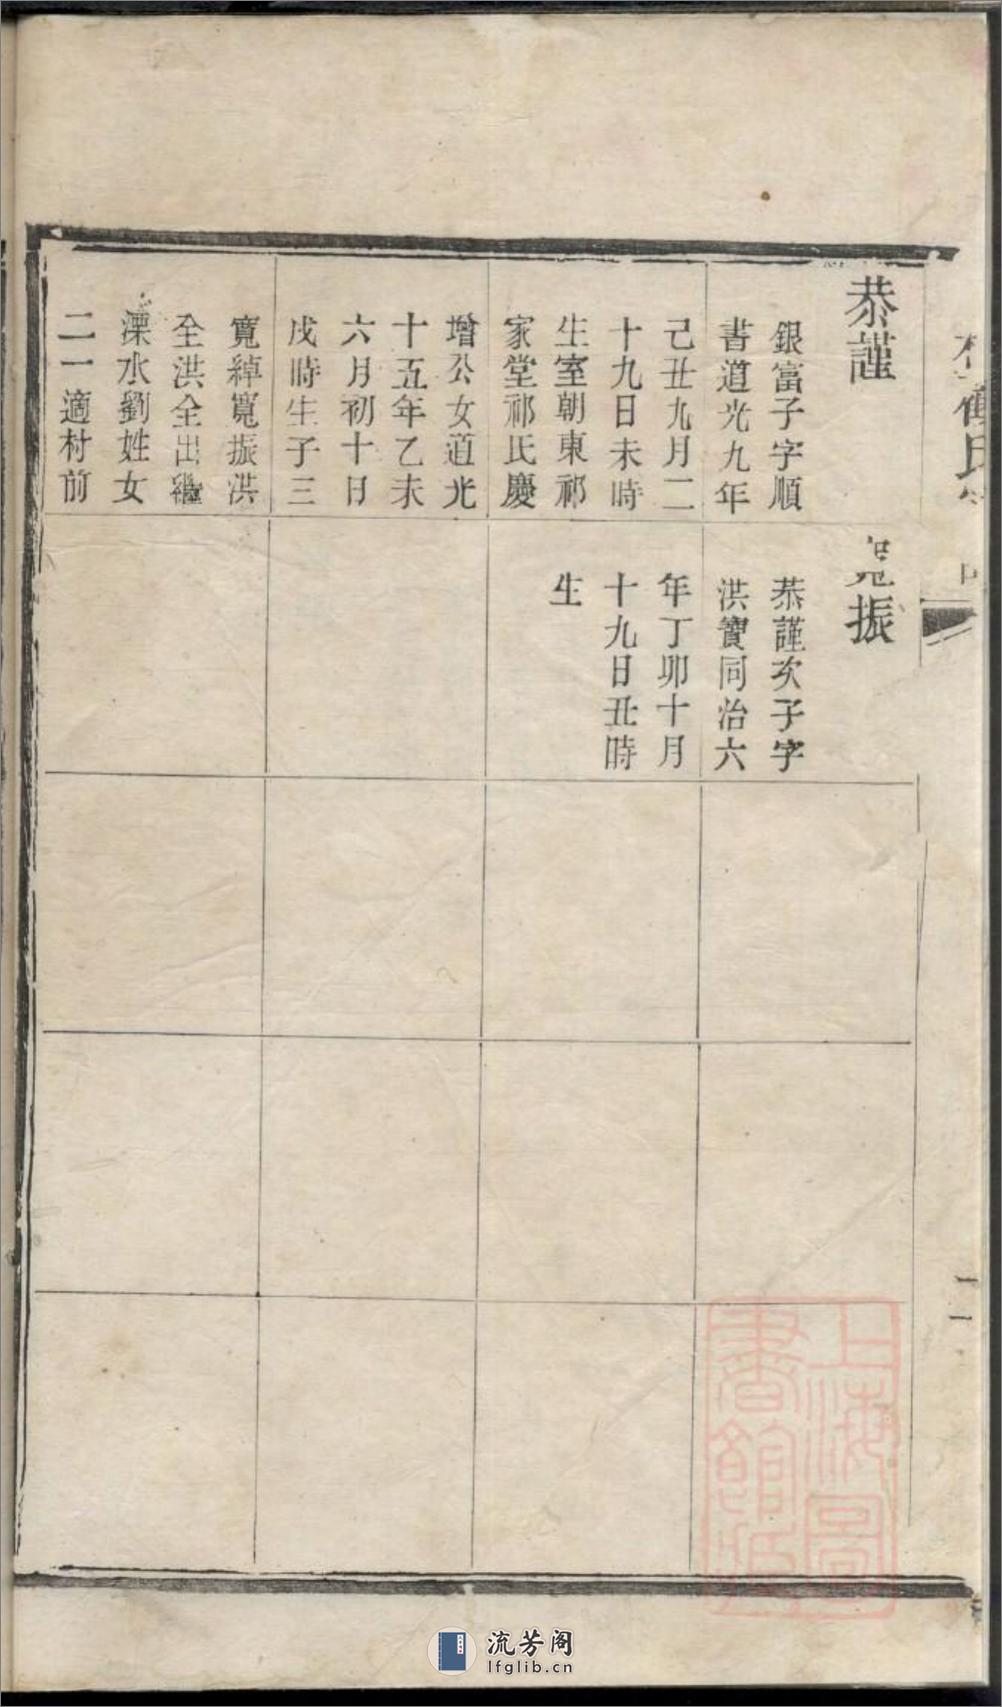 恭謹
銀富子字順
書道光九年
己丑九月二
十九日未時
生室朝東祁
家堂祁氏慶
增公女道光
十五年乙未
六月初十日
戌時生子三
寬綽寬振洪
全洪全出繼
溧水劉姓女
二一適村前
寬振
恭謹次子字
洪寶同治六
年丁卯十月
十九日丑時
生
氏
二一
上海圖
書館藏
流芳阁
lfglib.cn